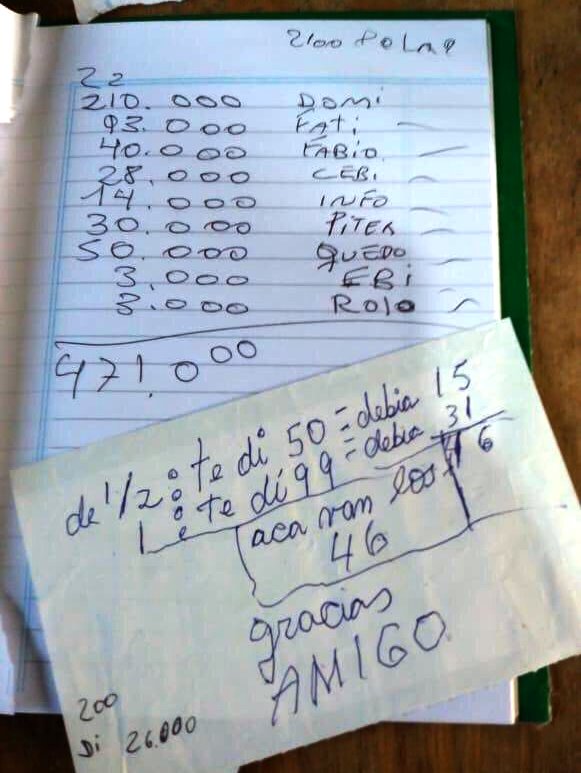 2100
22
210.000 DOMI
93.000 FATi
40.000 FABIO
28.000 CEBI
14.000 INFO
30.000 PITER
50.000 QUEDO
3.000 EBi
3.000 ROLO
471.000
de 1/2: te di 50 = debia 15
1: te di 99 = debia 31
46
aca van los
46
gracias
AMIGO
200
Di 26.000